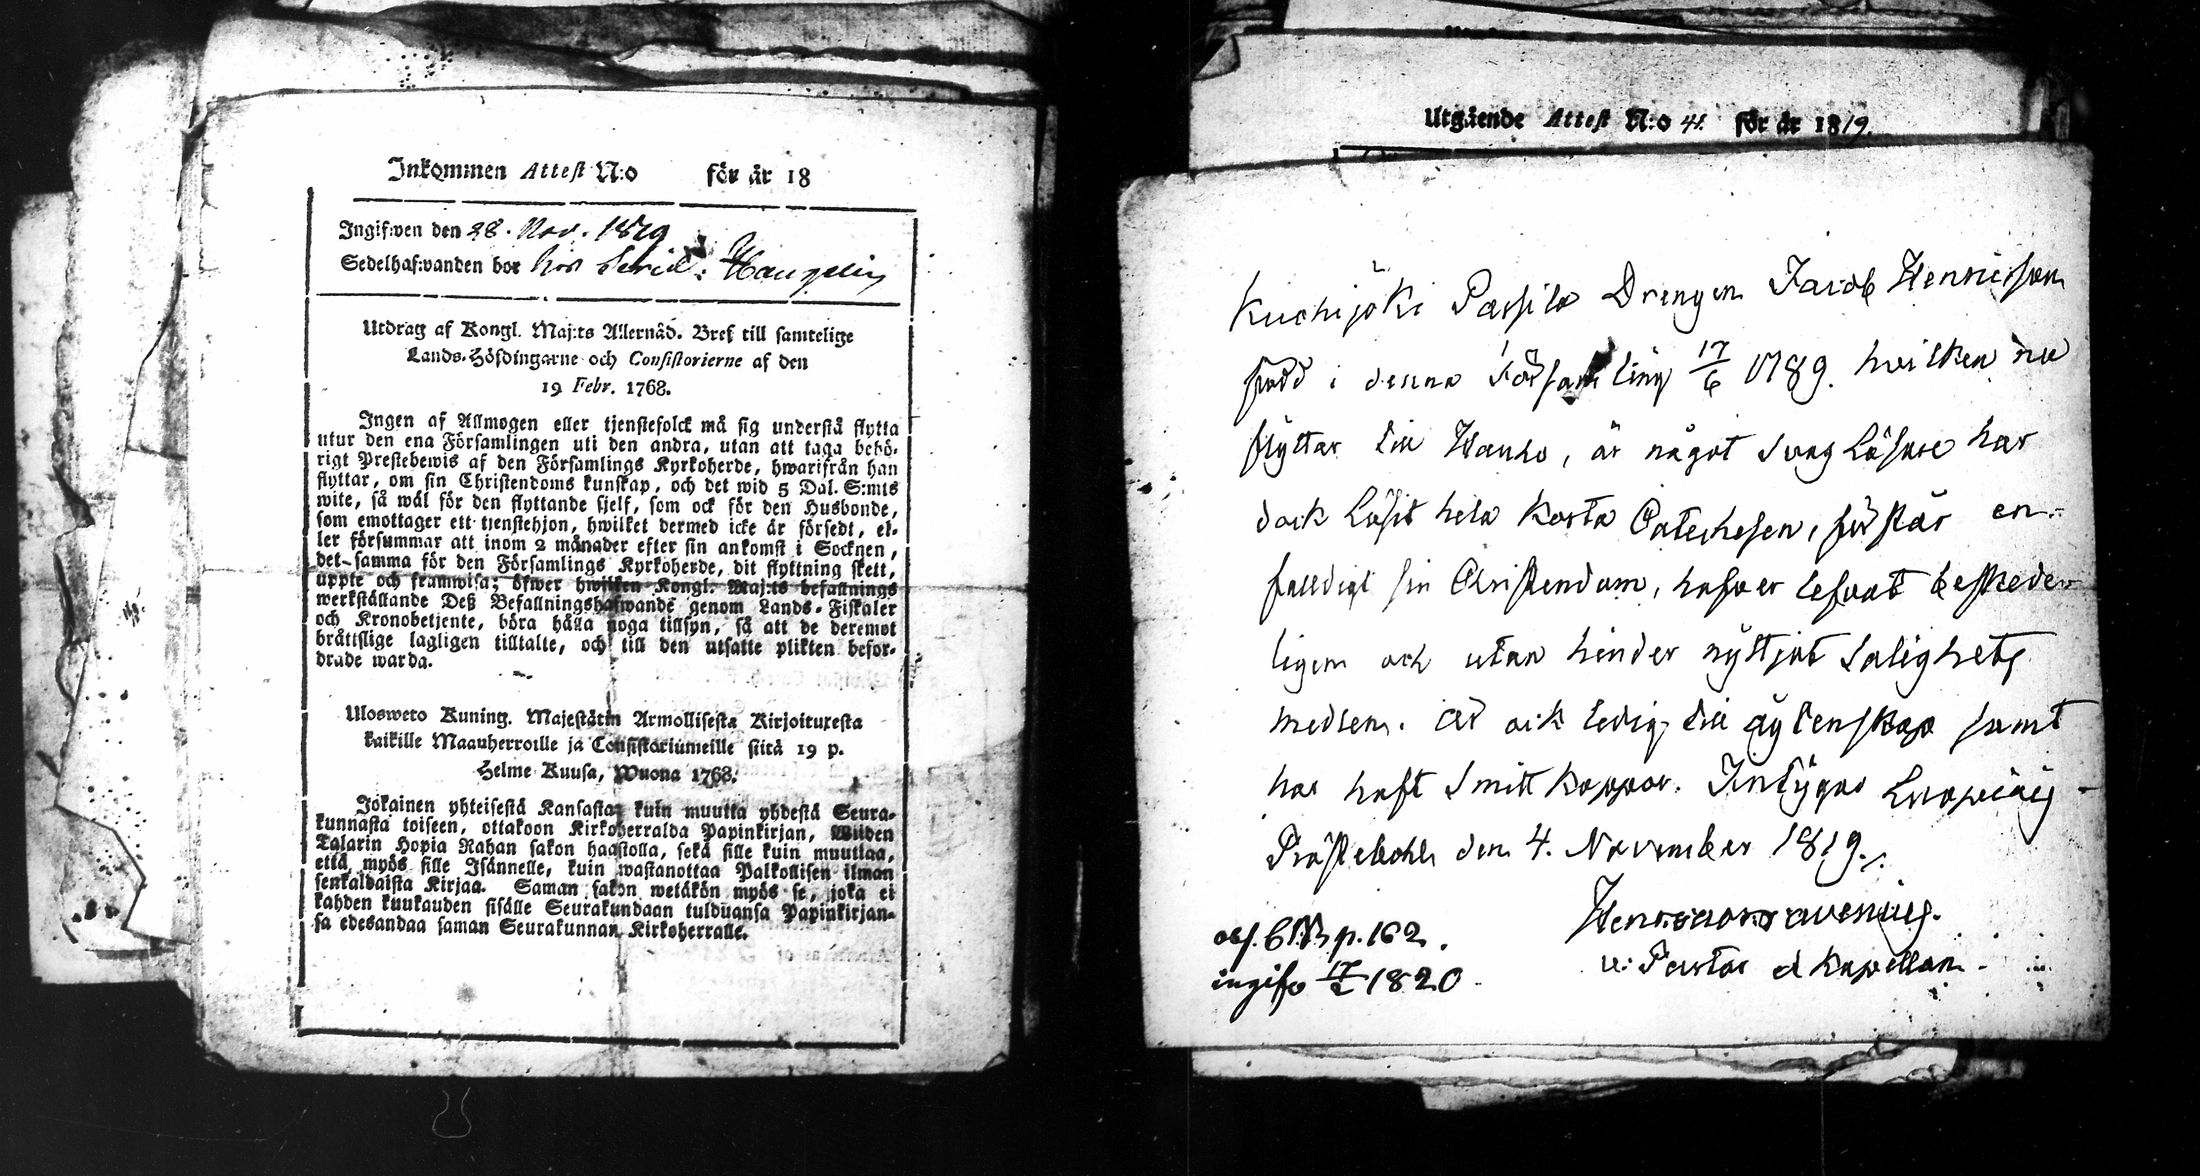 Inkommen Attest N:o för år 18
Ingifwen den 28. Nov. 1819
Sedelhafwanden bor hos
Utdrag af Kongl. Maj:ts Allernåd. Bref till samtelige
Lands-Höfdingarne och Consistorierne af den
19 Febr. 1768.
Ingen af Allmogen eller tjenstefolck må sig understå flytta
utur den ena Församlingen uti den andra, utan att taga behö-
rigt Prestebewis af den Församlings Kyrkoherde, hwarifrån han
flyttar, om sin Christendoms kunskap, och det wid 5 Dal. S:mts
wite, så wäl för den flyttande sjelf, som ock för den Husbonde,
som emottager ett tjenstehjon, hwilket dermed icke är försedt, el-
ler försummar att inom 2 månader efter sin ankomst i Socknen,
det-samma för den Församlings Kyrkoherde, dit flyttning skett,
uppte och framwisa; öfwer hwilken Kongl. Maj:ts befallnings
werkställande Deß Befallningshafwande genom Lands-Fiskaler
och Kronobetjente, böra hålla noga tillsyn, så att de deremot
bråttslige lagligen tilltalte, och till den utsatte plikten befor-
drade warda.
Ulosweto Kuning. Majestätin Armollisesta Kirjoituxesta
kaikille Maanherroille ja Consistoriumeille siitä 19 p.
Helme Kuusa, Wuona 1768.
Jokainen yhteisestä Kansasta kuin muutta yhdestä Seura-
kunnasta toiseen, ottakoon Kirkoherralda Papinkirjan, Wiiden
Talarin Hopia Rahan sakon haastolla, sekä sille kuin muuttaa,
että myös sille Isännelle, kuin wastanottaa Palkollisen ilman
senkaldaista Kirjaa. Saman sakon wetäkön myös se, joka ei
kahden kuukauden sisälle Seurakundaan tulduansa Papinkirjan-
sa edesandaa saman Seurakunnan Kirkoherralle.
Utgående Attest N:o 41. för år 1819.
Kuchijoki Passila Drengen Jacob Henricsson
född i denna Församling 17/6 1789. hvilken nu
flyttar till Hauho, är något svag Läsare har
dock Läsit hela Korta Catechesen, förstår en-
falldigt sin Christendom, hafver lefvat beskeder
ligen och utan hinder nyttjat Salighets
medlen. Är ock ledig till ägtenskap samt
har haft Smitt koppor. Intygar
Prästebohl den 4. November 1819.
v: Pastor et Kapellan.
p. 162.
ingifv 17/2 1820